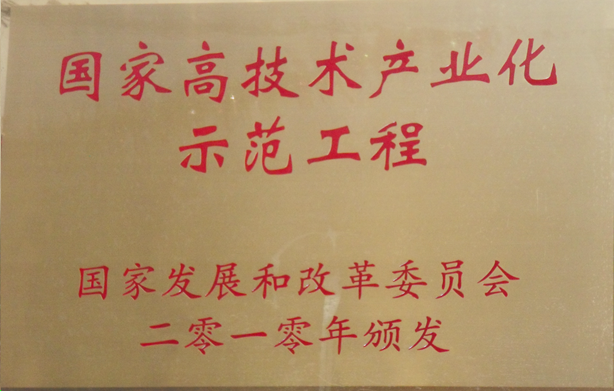 国家高技术产业化
示范工程
国家发展和改革委员会
二零一零年颁发